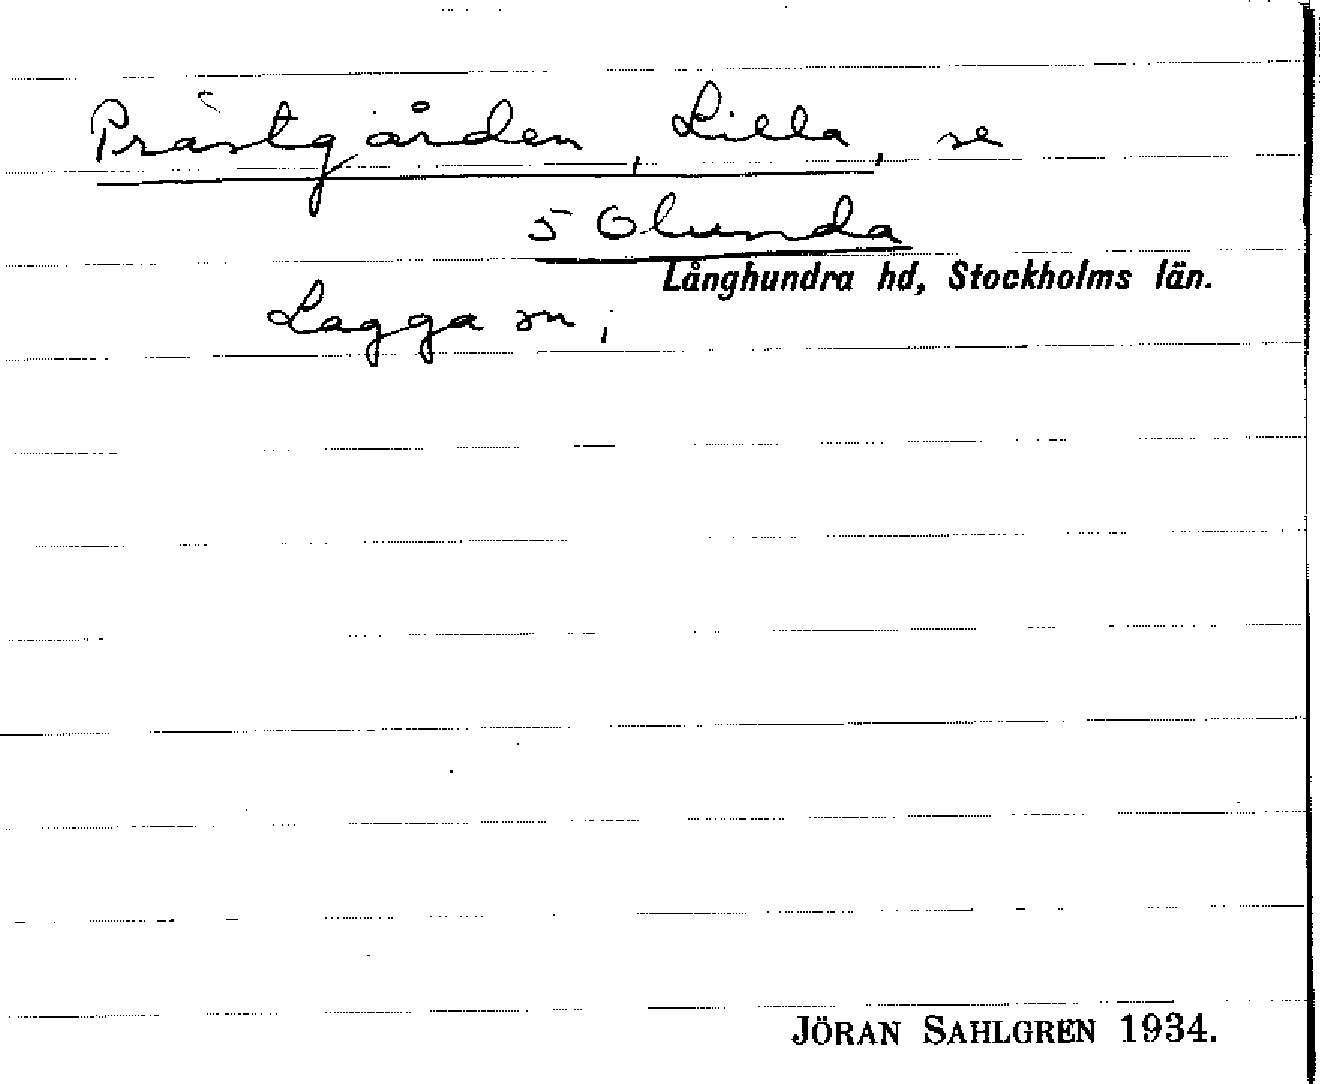 Prästgården, Lilla, se
5 Olunda
Långhundra hd, Stockholms län.
Lagga sn;
JÖRAN SAHLGREN 1934.